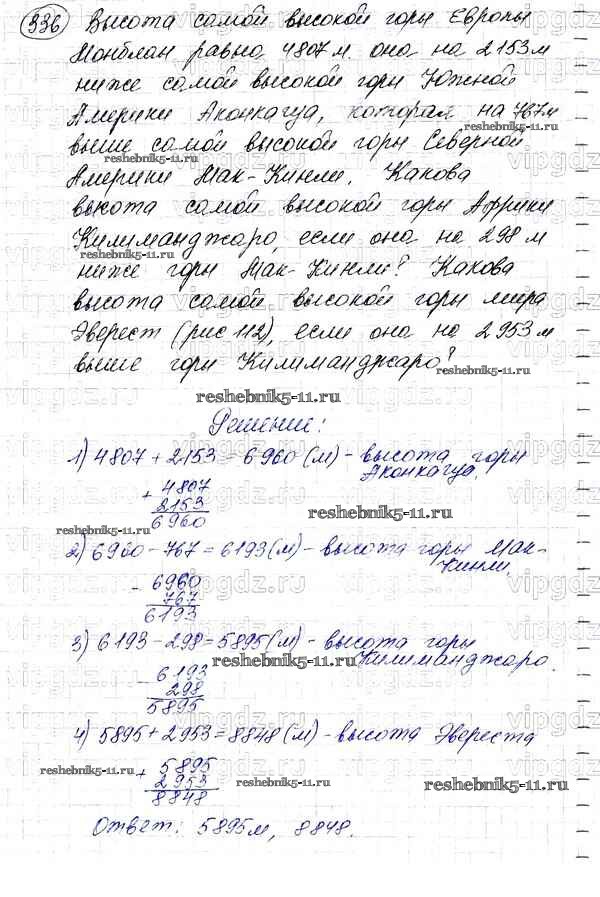 336 Высота самой высокой горы Европы
Монблан равна 4807 м. она на 2153 м
ниже самой высокой горы Южной
Америки Аконкагуа, которая на 767 м
выше самой высокой горы Северной
reshebnik5-11.ru
Америки Мак-Кинли. Какова
высота самой высокой горы Африки
Килиманджаро, если она на 298 м
reshebnik5-11.ru
ниже горы Мак-Кинли? Какова
высота самой высокой горы мира
Эверест (рис 112), если она на 2953 м
выше горы Килиманджаро?
reshebnik5-11.ru
reshebnik5-11.ru
Решение:
1) 4807 + 2153 = 6960 (м) - высота горы
Аконкагуа.
+ 4807
2153
6960
reshebnik5-11.ru
reshebnik5-11.ru
2) 6960 - 767 = 6193 (м) - высота горы Мак-
Кинли.
- 6960
767
6193
3) 6193 - 298 = 5895 (м) - высота горы
Килиманджаро.
reshebnik5-11.ru
- 6193
298
5895
4) 5895 + 2953 = 8848 (м) - высота Эвереста
reshebnik5-11.ru
+ 5895
2953
8848
reshebnik5-11.ru
reshebnik5-11.ru
Ответ: 5895 м, 8848.
vipgdz.ru